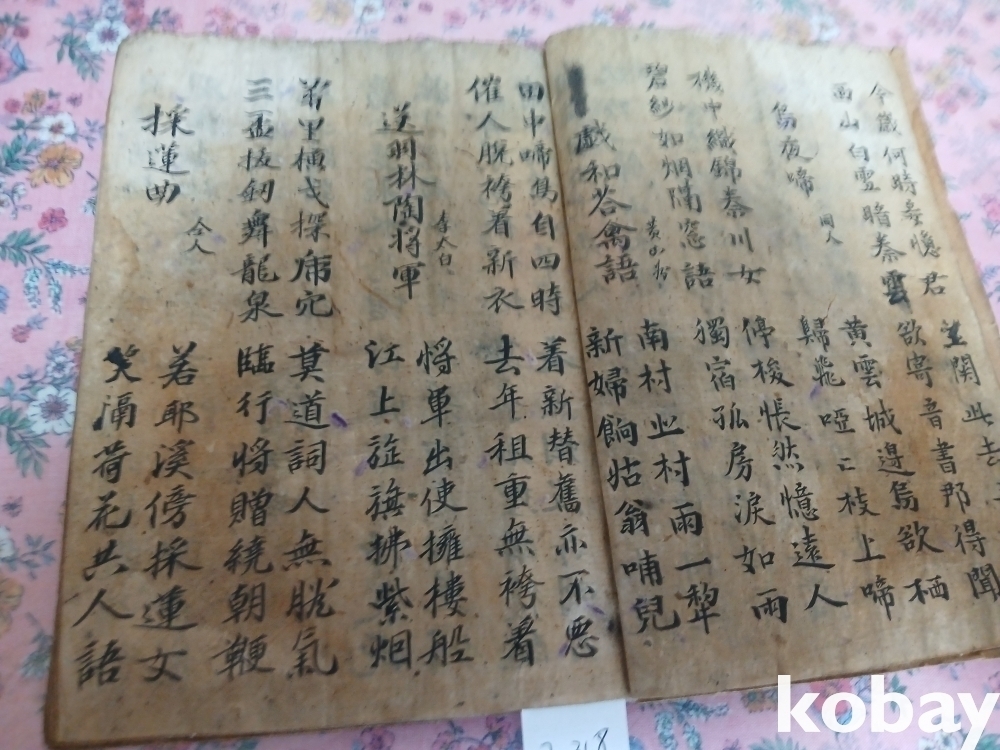 今歲何時妾憶君
西山白雪暗秦雲
關此去三
欲寄音書那得聞
烏夜啼 同人
黃雲城邊烏欲栖
歸飛啞〻枝上啼
機中織錦秦川女
碧紗如烟隔窓語
停梭悵然憶遠人
獨宿孤房淚如雨
戱和答禽語 黃山谷
南村北村雨一犂
新婦餉姑翁哺兒
田中啼鳥自四時
催人脫袴着新衣
着新替舊亦不惡
去年租重無袴着
送羽林陶將軍 李太白
將軍出使擁樓船
江上旌旗拂紫烟
萬里橫戈探虎穴
三盃拔釼舞龍泉
莫道詞人無膽氣
臨行將贈繞朝鞭
採蓮曲 仝人
若耶溪傍採蓮女
笑隔荷花共人語
kobay